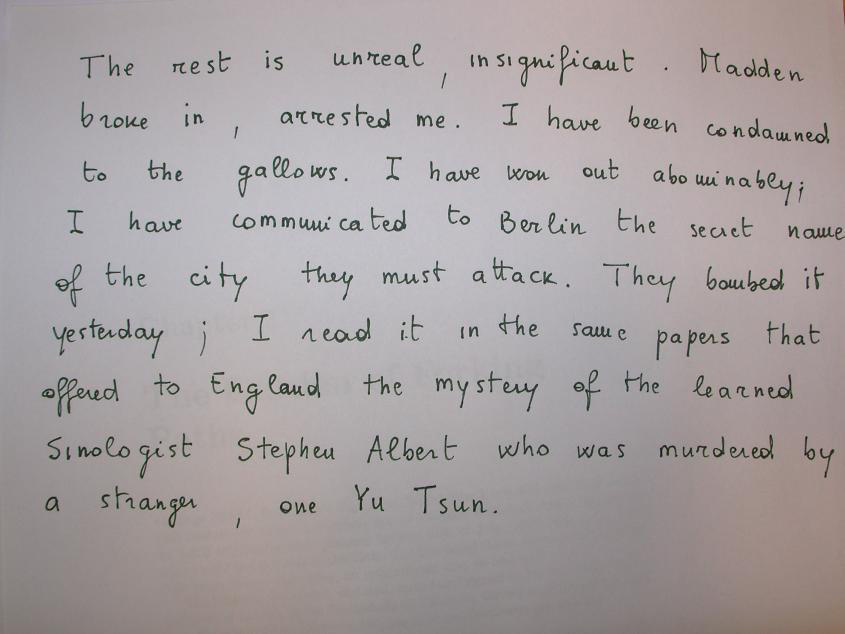 The rest is unreal, insignificant. Madden
broke in, arrested me. I have been condamned
to the gallows. I have won out abominably;
I have communicated to Berlin the secret name
of the city they must attack. They bombed it
yesterday; I read it in the same papers that
offered to England the mystery of the learned
Sinologist Stephen Albert who was murdered by
a stranger, one Yu Tsun.